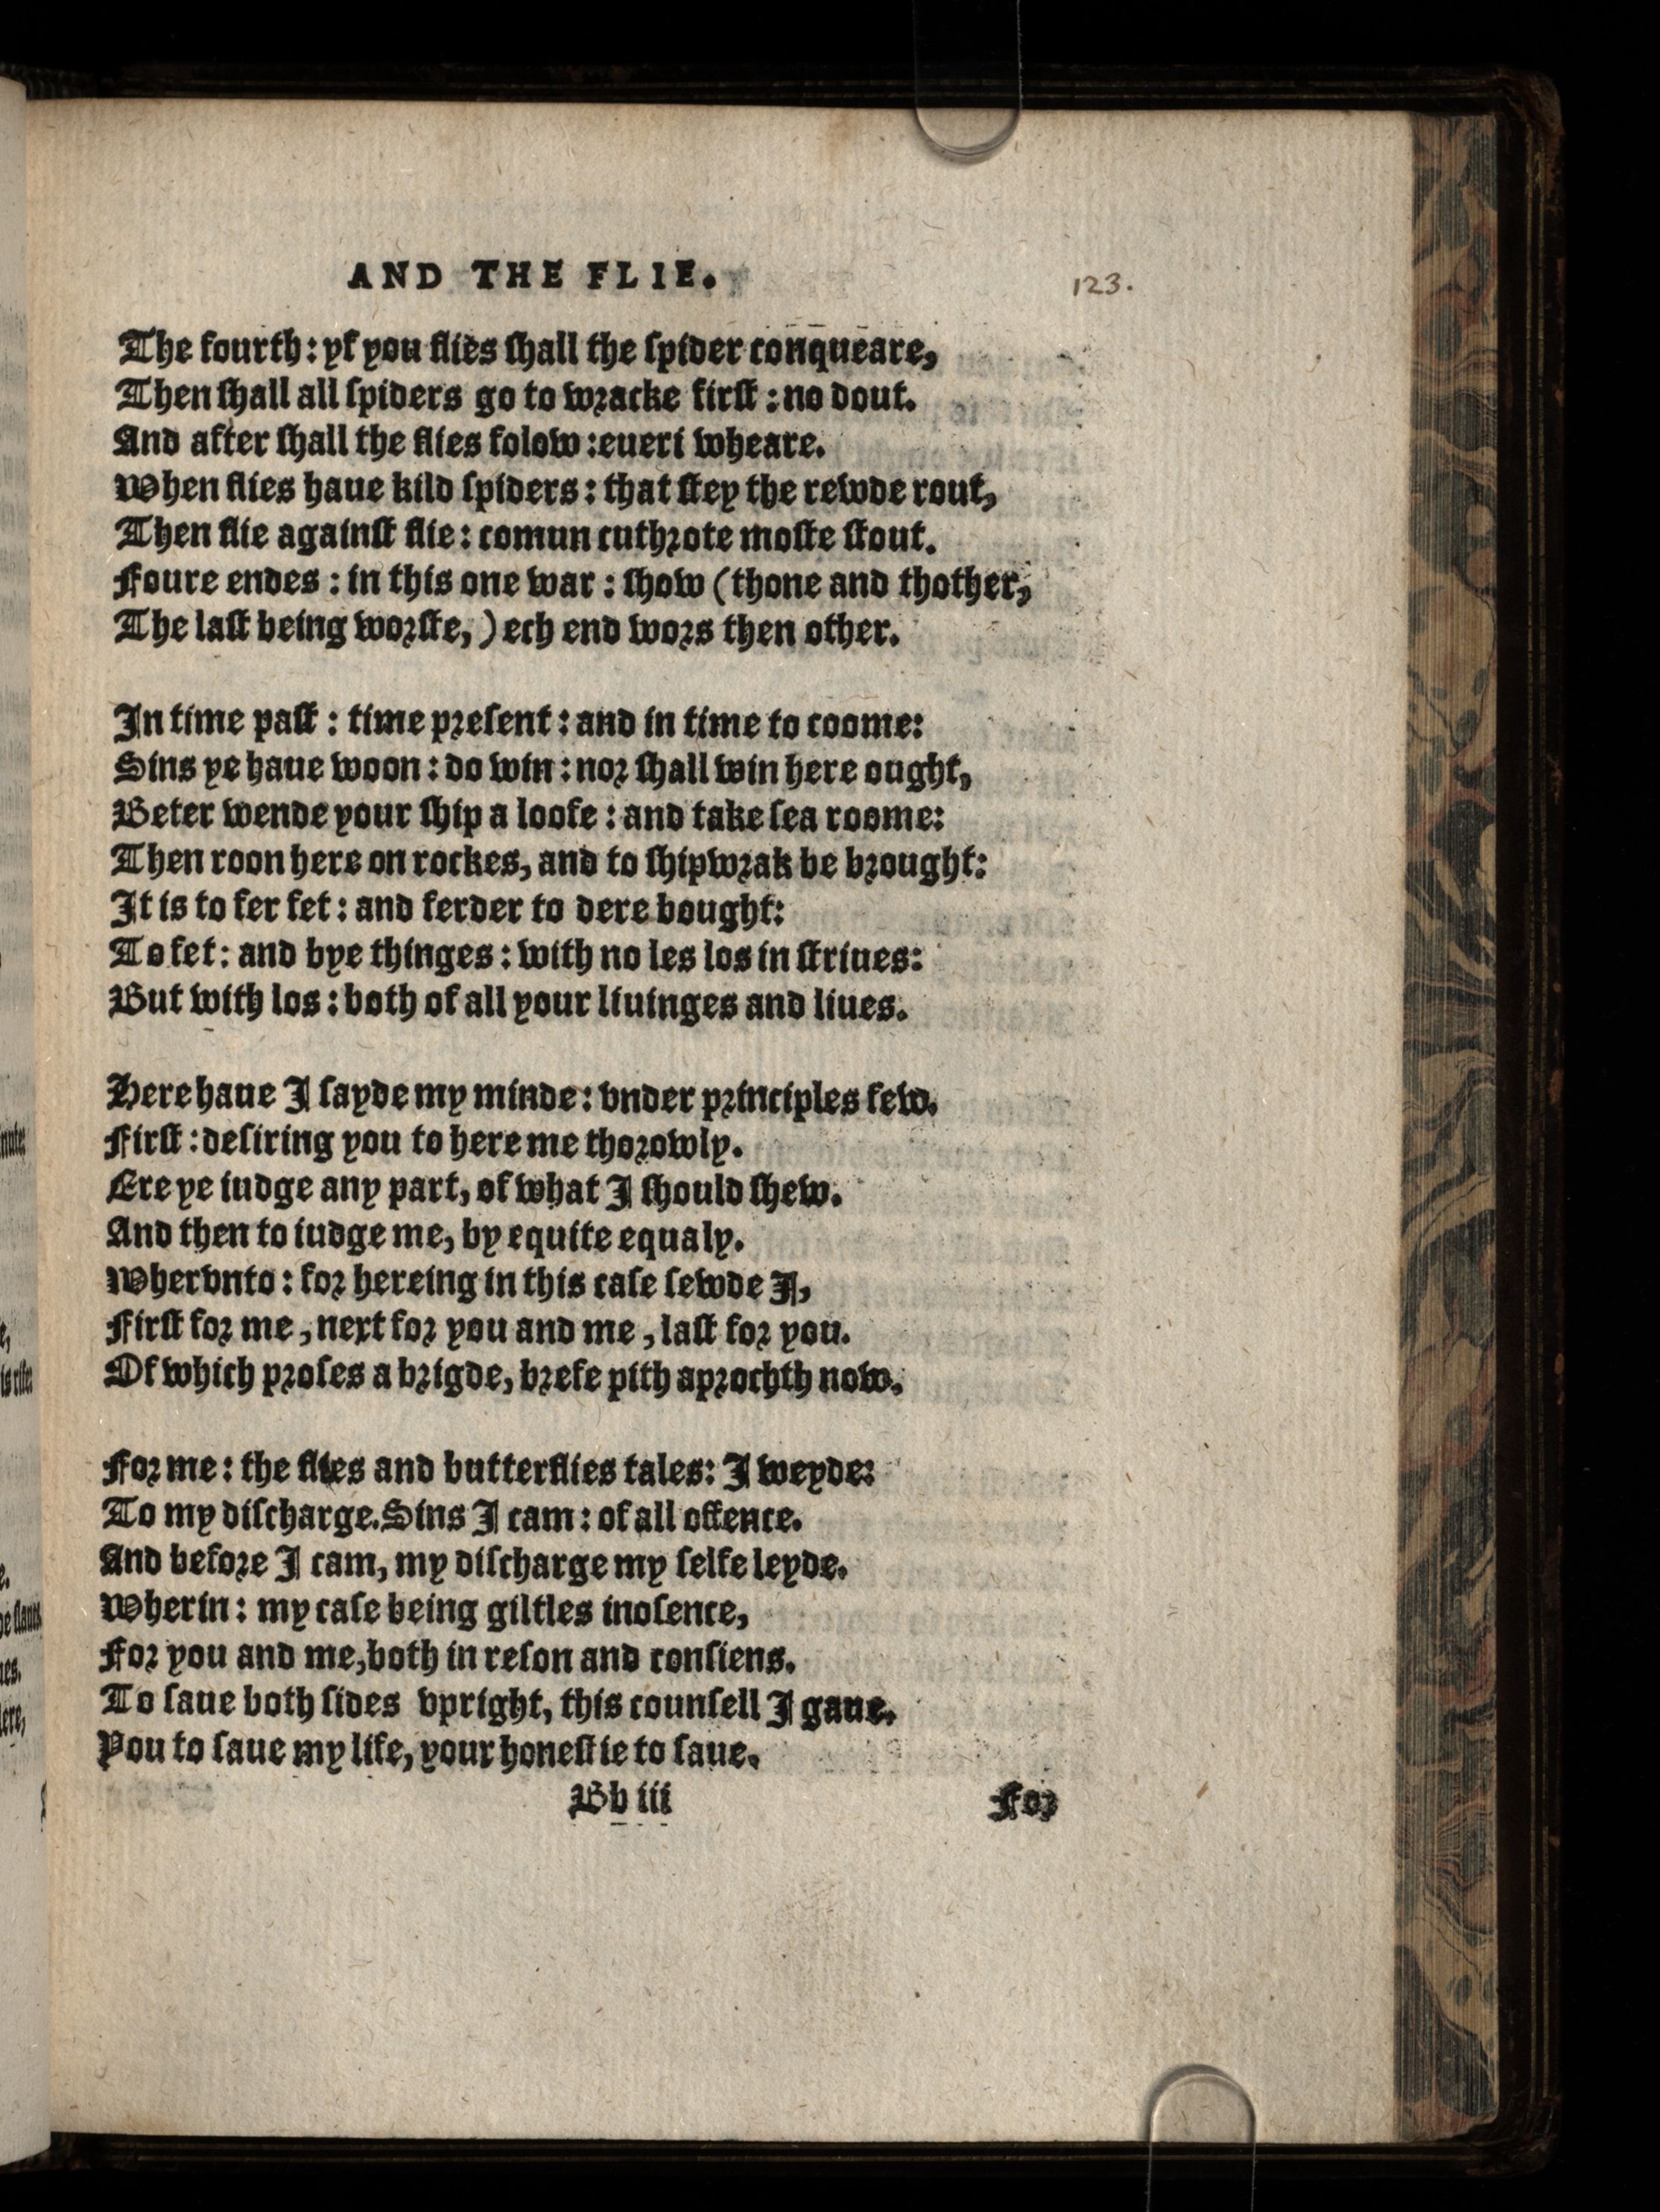 AND THE FLIE.
123.
The fourth: yf you flies ſhall the ſpider conqueare,
Then ſhall all ſpiders go to wracke firſt: no dout.
And after ſhall the flies folow: eueri wheare.
When flies haue kild ſpiders: that ſtey the rewde rout,
Then flie againſt flie: comun cuthrote moſte ſtout.
Foure endes: in this one war: ſhow (thone and thother,
The laſt being worſte,) ech end wors then other.
In time paſt: time preſent: and in time to coome:
Sins ye haue woon: do win: nor ſhall win here ought,
Beter wende your ſhip a loofe: and take ſea roome:
Then roon here on rockes, and to ſhipwrak be brought:
It is to fer fet: and ferder to dere bought:
To fet: and bye thinges: with no les los in ſtriues:
But with los: both of all your liuinges and liues.
Here haue I ſayde my minde: vnder principles few.
Firſt: deſiring you to here me thorowly.
Ere ye iudge any part, of what I ſhould ſhew.
And then to iudge me, by equite equaly.
Whervnto: for hereing in this caſe ſewde I,
Firſt for me, next for you and me, laſt for you.
Of which proſes a brigde, brefe pith aprochth now.
For me: the flies and butterflies tales: I weyde:
To my diſcharge. Sins I cam: of all offence.
And before I cam, my diſcharge my ſelfe leyde.
Wherin: my caſe being giltles inoſence,
For you and me, both in reſon and conſiens.
To ſaue both ſides vpright, this counſell I gaue.
You to ſaue my life, your honeſtie to ſaue.
Bb iii
For